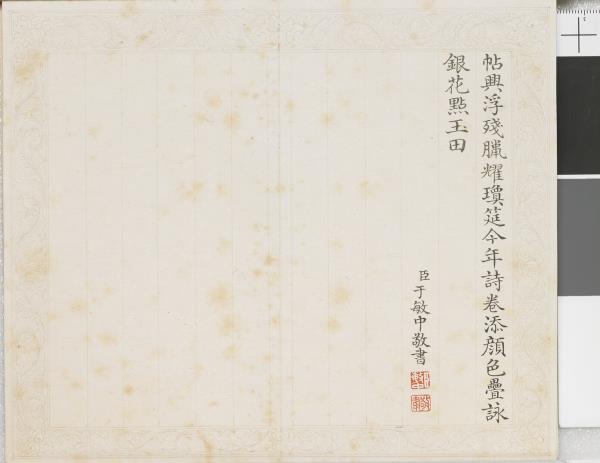 帖興浮殘臘耀瓊筵今年詩卷添顏色疊詠
銀花㸃玉田
臣于敏中敬書